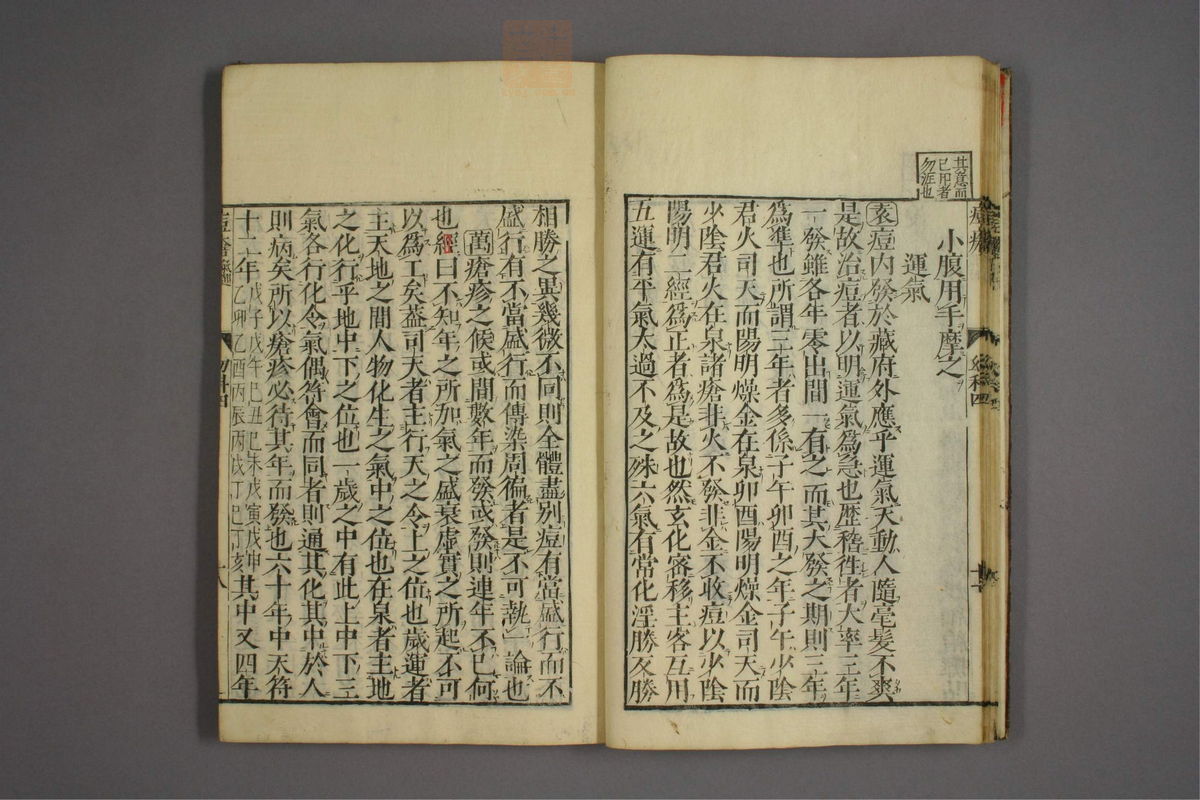 其意而
已印者
勿泥也
小腹用手摩之
運氣
袁痘内發於藏府外應乎運氣天動人隨毫髮不爽
是故治痘者以明運氣爲急也歷稽徃者大率三年
一發雖各年零出間一有之而其大發之期則三年
爲準也所謂三年者多係子午卯酉之年子午少陰
君火司天而陽明燥金在泉卯酉陽明燥金司天而
少陰君火在泉諸瘡非火不發非金不收痘以少陰
陽明二經爲正者爲是故也然玄化密移主客互用
五運有平氣太過不及之殊六氣有常化淫勝反勝
相勝之異幾微不同則全體盡別痘有當盛行而不
盛行有不當盛行而傳染周徧者是不可執一論也
萬瘡疹之候或間數年而發或發則連年不已何
也經曰不知年之所加氣之盛衰虛實之所起不可
以爲工矣蓋司天者主行天之令上之位也歲運者
主天地之間人物化生之氣中之位也在泉者主地
之化行乎地中下之位也一歲之中有此上中下三
氣各行化令氣偶符會而同者則通其化其中於人
則病矣所以瘡疹必待其年而發也六十年中天符
十二年戊子戊午己丑己未戊寅戊申乙卯乙酉丙辰丙戌丁巳丁亥其中又四年
幼科四
十八